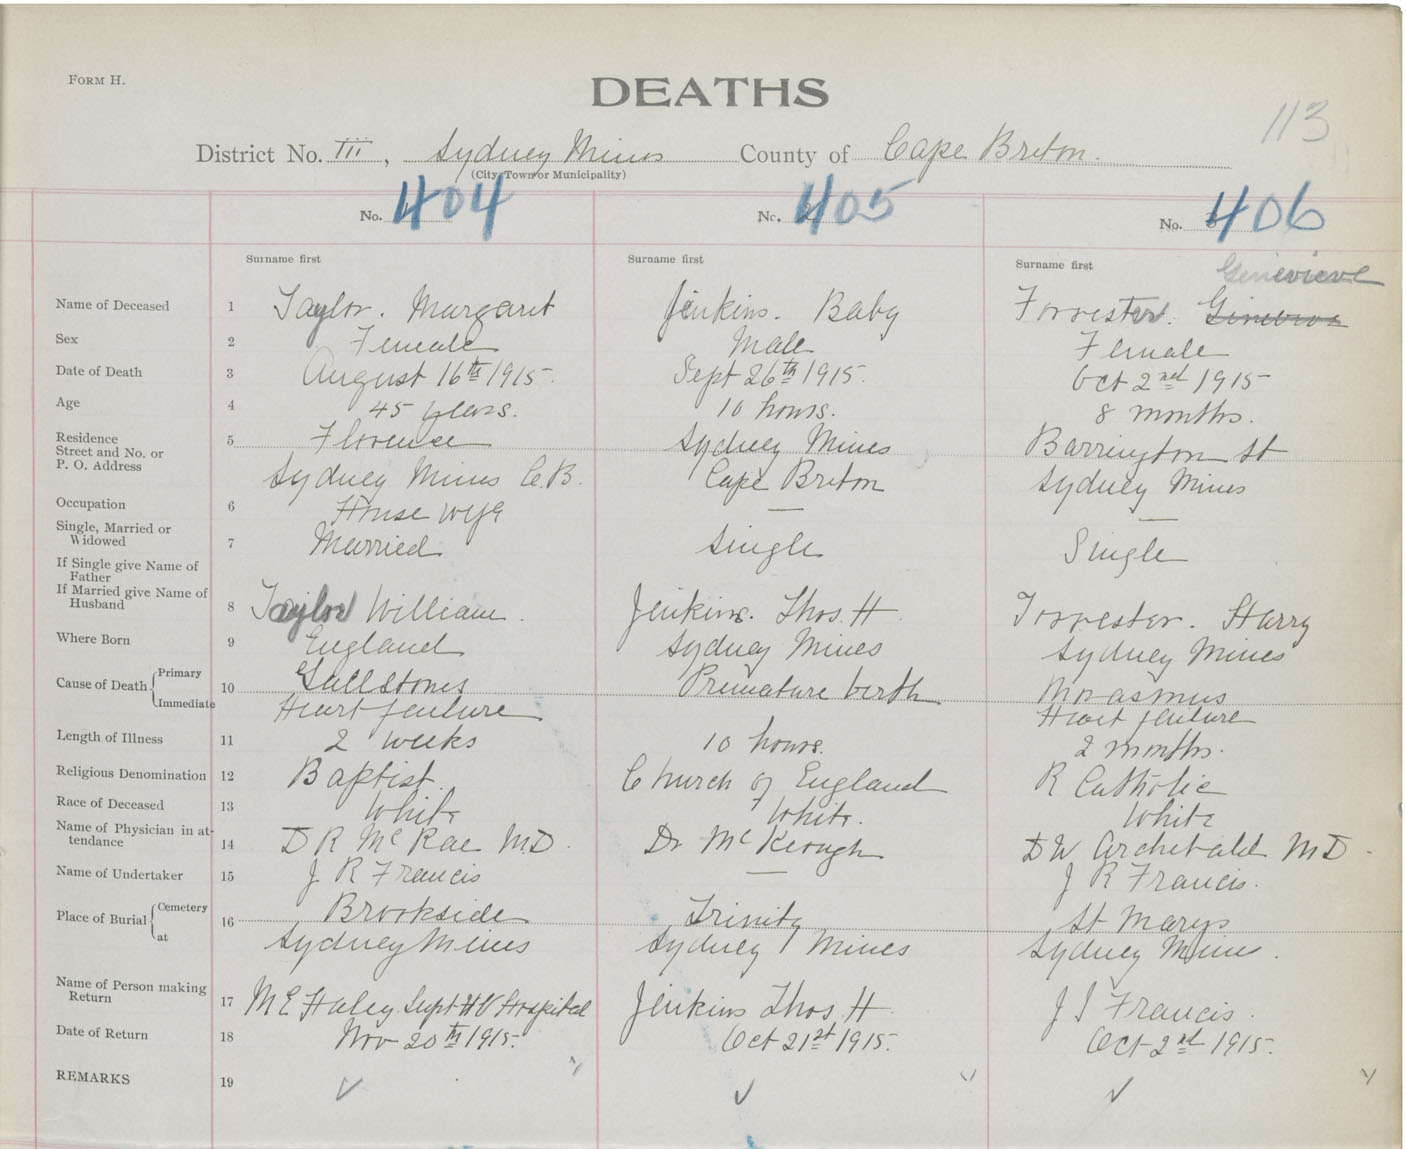 FORM H.
DEATHS
113
District No. III, Sydney Mines County of Cape Breton.
(City, Town or Municipality)
No. 404 No. 405 No. 406
Surname first Surname first Surname first Genevieve
Name of Deceased 1 Taylor. Margaret Jenkins. Baby Forrester.
Sex 2 Female Male Female
Date of Death 3 August 16th 1915. Sept 26th 1915. Oct 2nd 1915
Age 4 45 years. 10 hours. 8 months.
Residence Street and No. or P. O. Address 5 Florence Sydney Mines Barrington St
Sydney Mines C.B. Cape Breton Sydney Mines
Occupation 6 House wife — —
Single, Married or Widowed 7 Married Single Single
If Single give Name of Father
If Married give Name of Husband 8 Taylor William. Jenkins. Thos. H Forrester. Harry
Where Born 9 England Sydney Mines Sydney Mines
Cause of Death { Primary 10 Gallstones Premature birth Morasmus
Immediate Heart failure Heart failure
Length of Illness 11 2 weeks 10 hours. 2 months.
Religious Denomination 12 Baptist. Church of England R Catholic
Race of Deceased 13 White White. White
Name of Physician in attendance 14 D R McRae M.D. Dr McKeough D W Archibald M D.
Name of Undertaker 15 J R Francis — J R Francis.
Place of Burial { Cemetery 16 Brookside Trinity St Marys
at Sydney Mines Sydney Mines Sydney Mines.
Name of Person making Return 17 M E Haley Supt Hospital Jenkins Thos. H J J Francis.
Date of Return 18 Nov 20th 1915. Oct 21st 1915. Oct 2nd 1915.
REMARKS 19